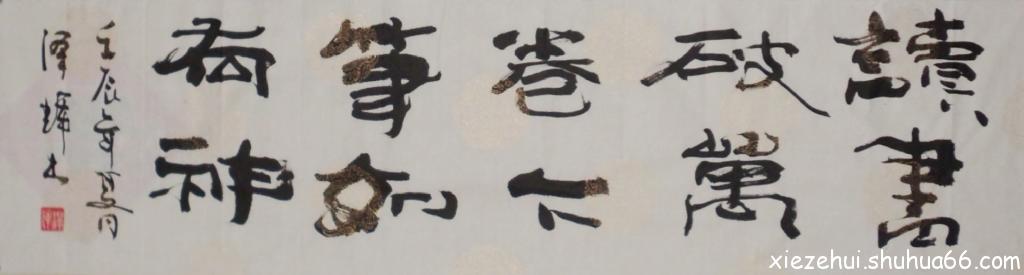 讀書
破萬
卷下
筆如
有神
壬辰年夏月
澤輝书
xiezehui.shuhua66.com